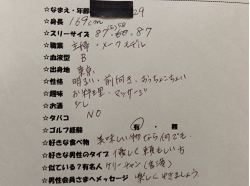 ☆なまえ・年齢 29
☆身長 169cm
☆スリーサイズ 87.60.87
☆職業 主婦・メークモデル
☆血液型 B
☆出身地 東京
☆性格 明るい 前向き・おっちょこちょい
☆趣味 お料理・マッサージ
☆お酒 少し
☆タバコ NO
☆ゴルフ経験 有・無
☆好きな食べ物 美味しい物なら何でも
☆好きな男性のタイプ 優しく頼もしい方
☆似ている?有名人 ケリーチャン(香港)
☆男性会員さまへメッセージ 楽しくすごしましょう